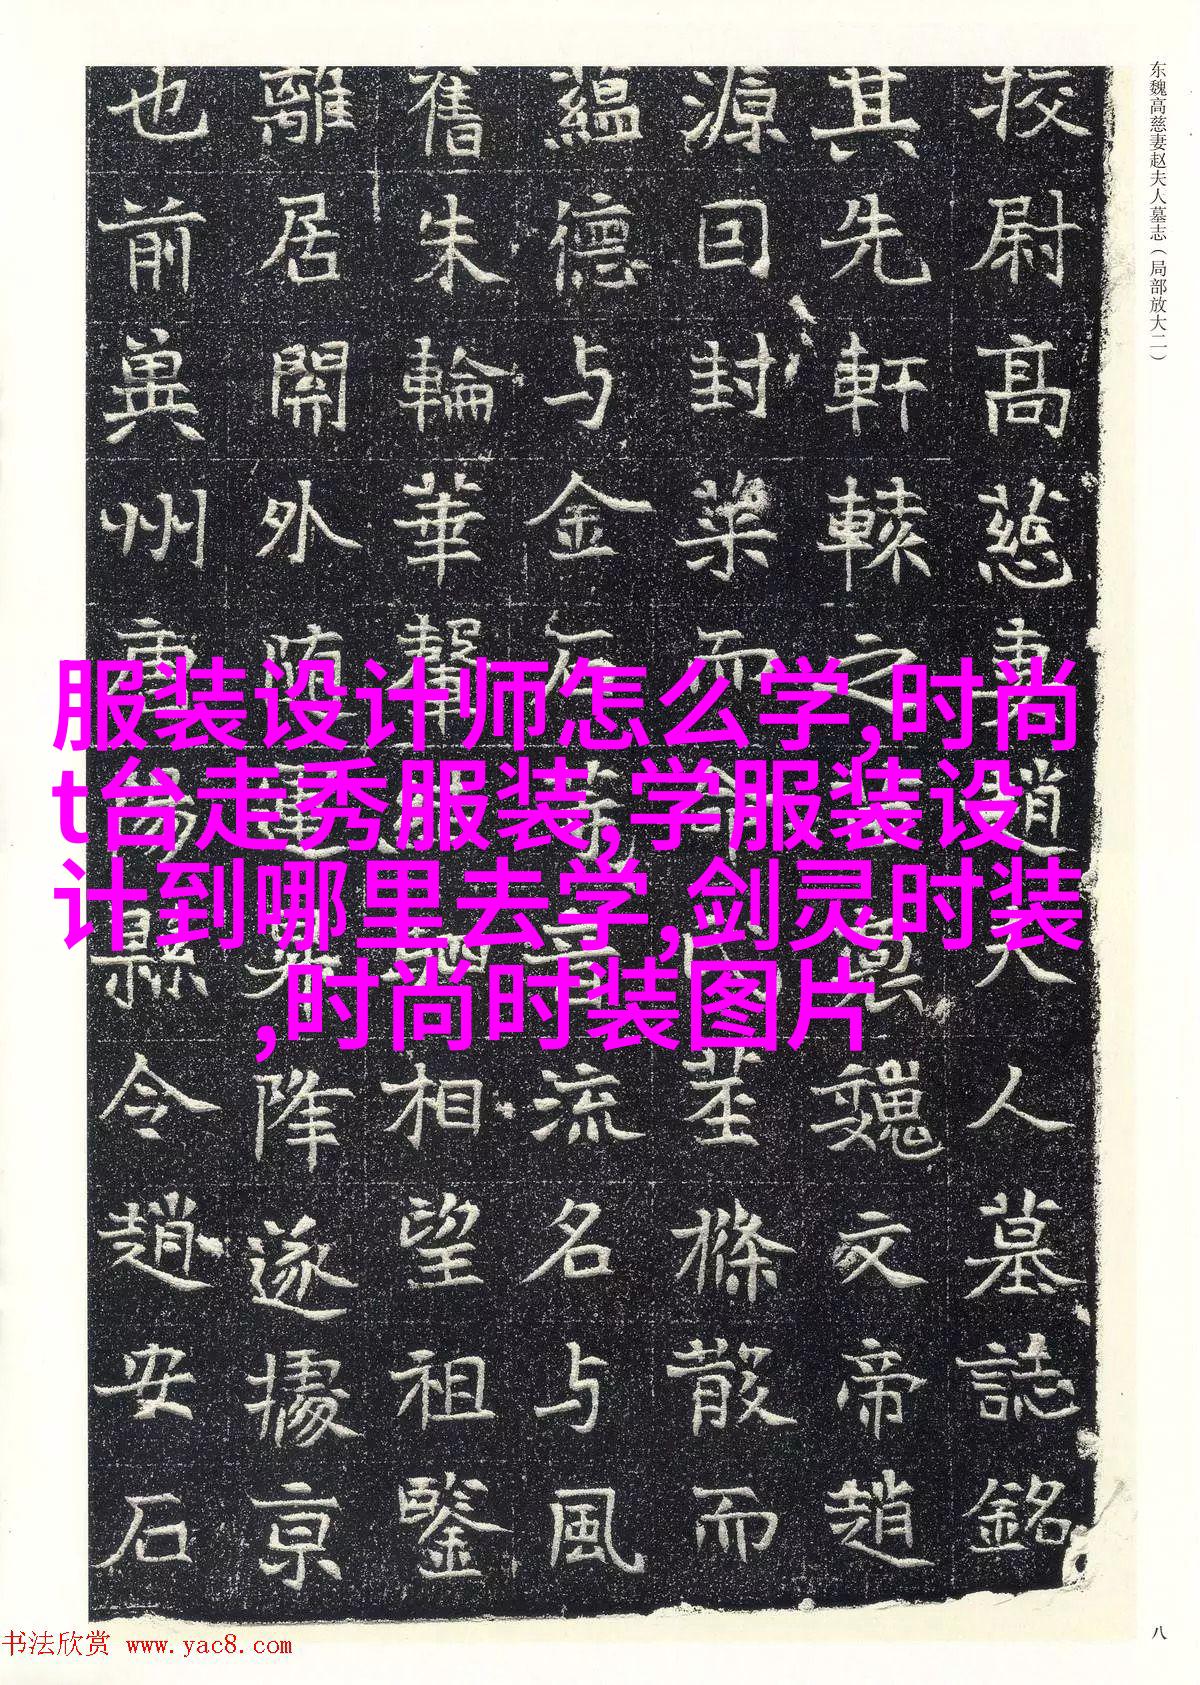 东魏高慈妻赵夫人墓志（局部放大二）
校尉高慈妻趙夫人墓誌銘
其先軒轅之
魏文帝趙
源曰封
而
茎條散而
蘊德与金石
流名与風
舊朱輪華
相望祖鑒
離居開外
降遂據京
也前冀州
縣令趙安石
服装设计师怎么学,时尚
t台走秀服装,学服装设
计到哪里去学,剑灵时装
,时尚时装图片
八
书法欣赏 www.yac8.com